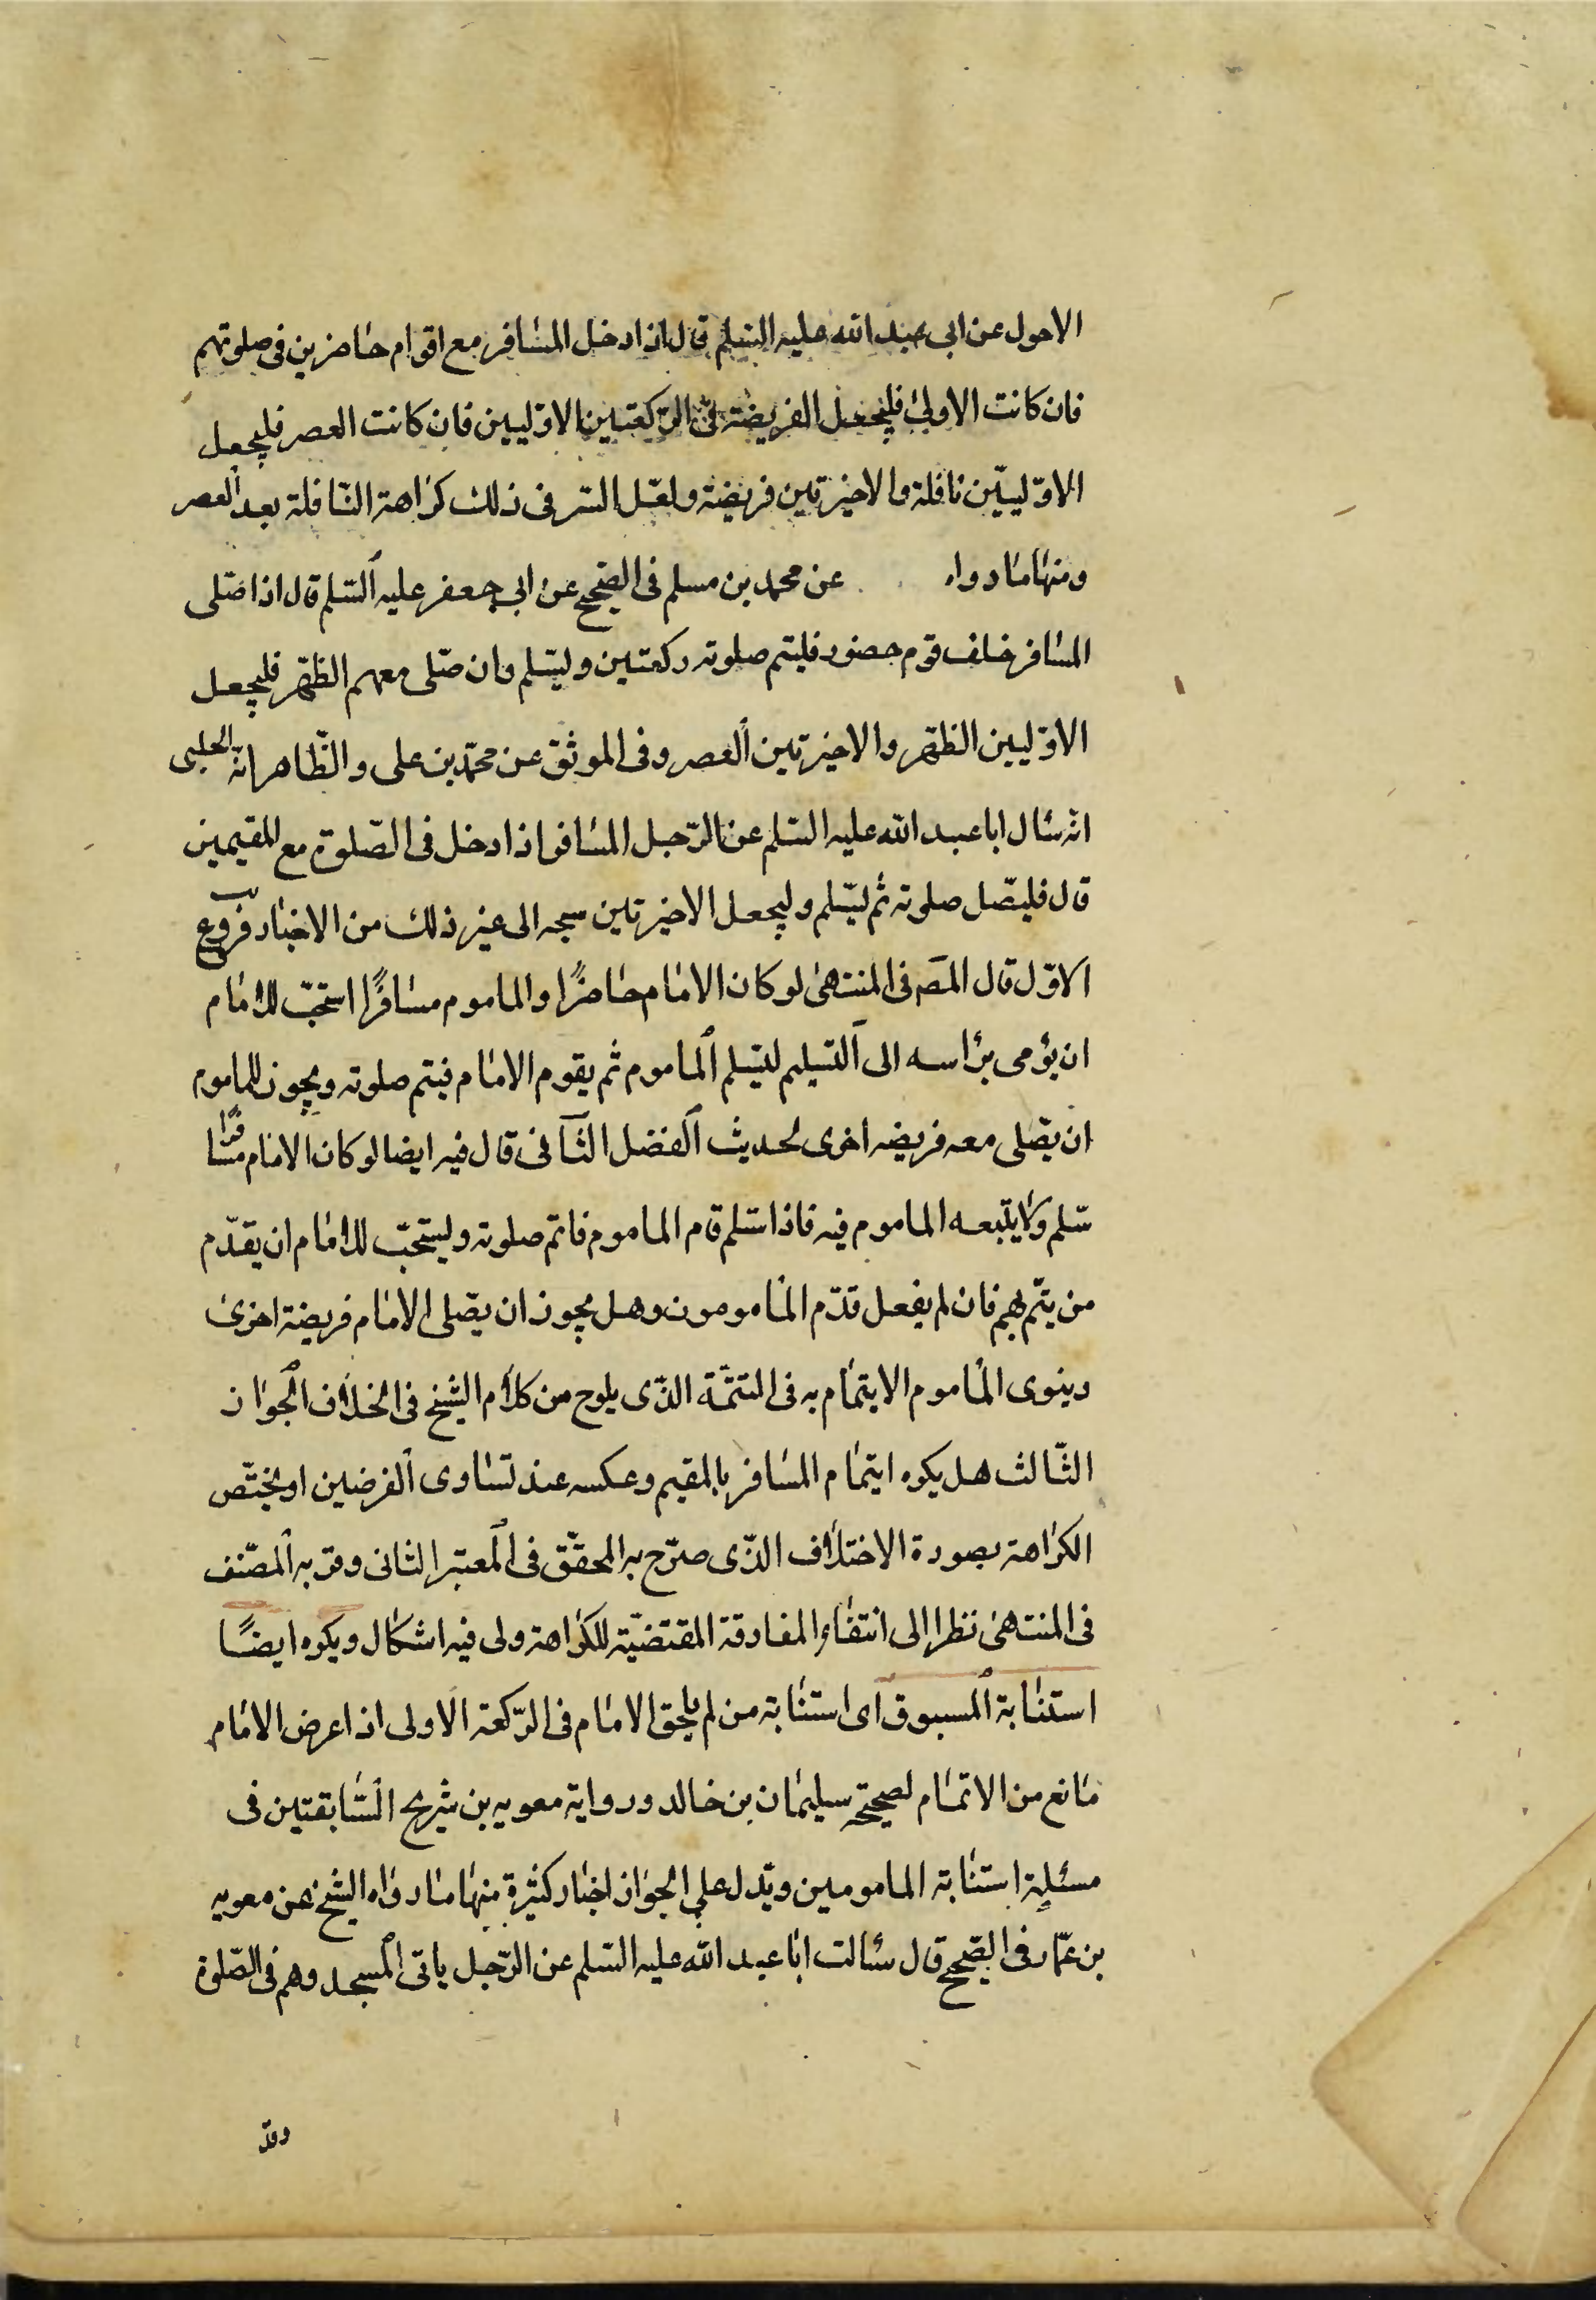 الاحول عن ابی عبد الله علیه السّلم قال اذا دخل المسٰافر مع اقوام حٰاضرین فی صلوتهم
فان کانت الاولیٰ فلیجعل الفریضة فی الرّکعتین الاوّلیین فان کانت العصر فلیجعل
الاوّلیین نافلة والاخیرتین فریضة ولعّل السّر فی ذلک کرٰاهة النّافلة بعد العصر
ومنهٰا مٰا رواه عن محمد بن مسلم فی الصّحیح عن ابی جعفر علیه السّلم قال اذا صّلی
المسٰافر خلف قوم حضور فلیتم صلوته رکعتین ولیسّلم وان صّلی معهم الظّهر فلیجعل
الاوّلیین الظّهر والاخیرتین العصر وفی الموثّق عن محمّد بن علی والظّاهر انّه الحلبی
انّه سٔال ابا عبد الله علیه السّلم عن الرّجل المسٰافر اذا دخل فی الصّلوة مع المقیمین
قال فلیصّل صلوته ثم لیسّلم ولیجعل الاخیرتین سبحه الی غیر ذلک من الاخبٰار فروع
الاوّل قال المصَ فی المنتهیٰ لو کان الامٰام حٰاضرًا والماموم مسٰافرًا استحّب للامٰام
ان یؤمی برٔاسه الی التسلیم لیسّلم الماموم ثم یقوم الامٰام فیتم صلوته ویجوز للماموم
ان یصّلی معه فریضه اخری لحدیث الفضل الثّانی قال فیه ایضا لو کان الامٰام مسٰافرًا
سّلم ولا یتبعه الماموم فیه فاذا سّلم قام الماموم فاتم صلوته ویستحّب للامٰام ان یقدّم
من یتّم بهم فان لم یفعل قدّم المٔامومون وهل یجوز ان یصّلی الامٰام فریضة اخریٰ
وینوی المٔاموم الایتمٰام به فی التتمّة الذّی یلوح من کلٰام الشّیخ فی الخلٰاف الجوٰاز
الثّالث هل یکره ایتمٰام المسٰافر بالمقیم وعکسه عند تسٰاوی الفرضین او یختّص
الکرٰاهة بصورة الاختلٰاف الذّی صرّح به المحقّق فی المعتبر الثانی وقرّ به المصّنف
فی المنتهیٰ نظرا الی انتفٰاء المفارقة المقتضیّة للکرٰاهة ولی فیه اشکال ویکره ایضًا
استنٰابة المسبوق ای استنٰابة من لم یلحق الامٰام فی الرّکعة الاولی اذا عرض الامٰام
مٰانع من الاتمٰام لصحیحة سلیمٰان بن خالد وروایة معویه بن شریح السّٰابقتین فی
مسئلة استنٰابة المامومین ویّدل علی الجوٰاز اخبٰار کثیرة منهٰا مٰا روٰاه الشّیخ عن معویه
بن عمّار فی الصّحیح قال سٔالت ابٰا عبد الله علیه السّلم عن الرّجل یاتی المسجد وهم فی الصّلوة
وقد